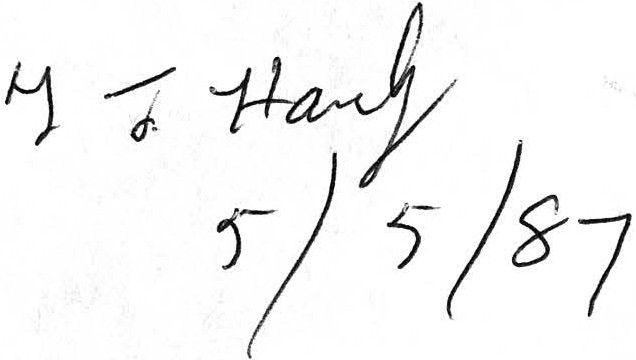 M J Hardy
5/5/87